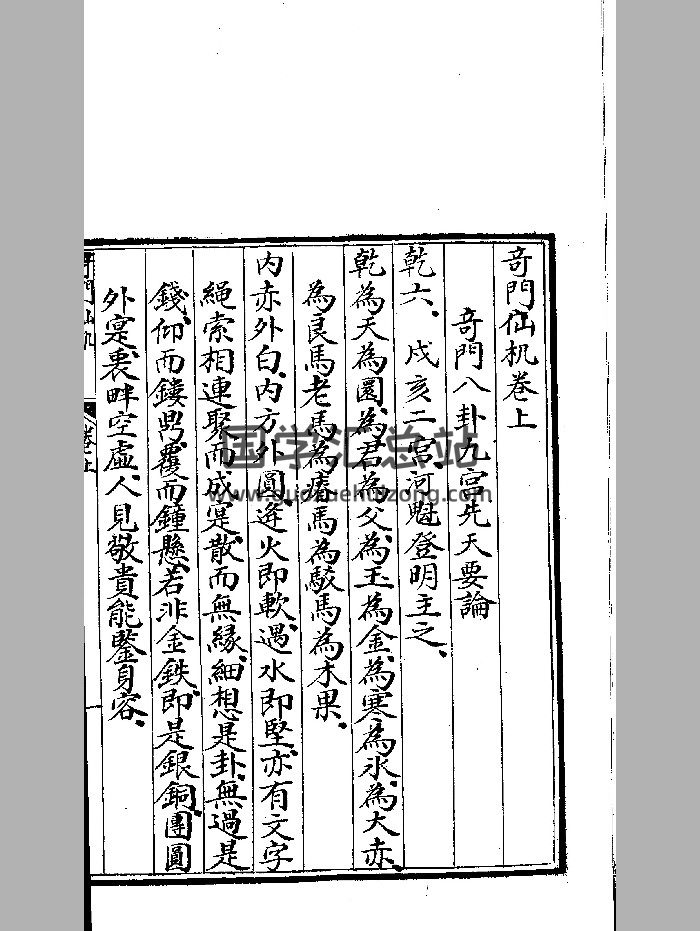 奇門仙机卷上
奇門八卦九宮先天要論
乾六、戌亥二宮、河魁登明主之、
乾為天為圜、為君為父、為玉為金、為寒為氷、為大赤、
為良馬老馬為瘠馬為駁馬為木果、
内亦外白、内方外圓、逆火即軟、遇水即堅、亦有文字
繩索相連、聚而成寔、散而無緣、細想是卦、無過是
錢、仰而鏤鼎、覆而鐘懸、若非金鉄、即是銀銅、團圓
外寔、裹畔空虛、人見敬貴能鑒身容、
奇門仙机
卷上
国学汇总站
www.guoxuehuizong.com